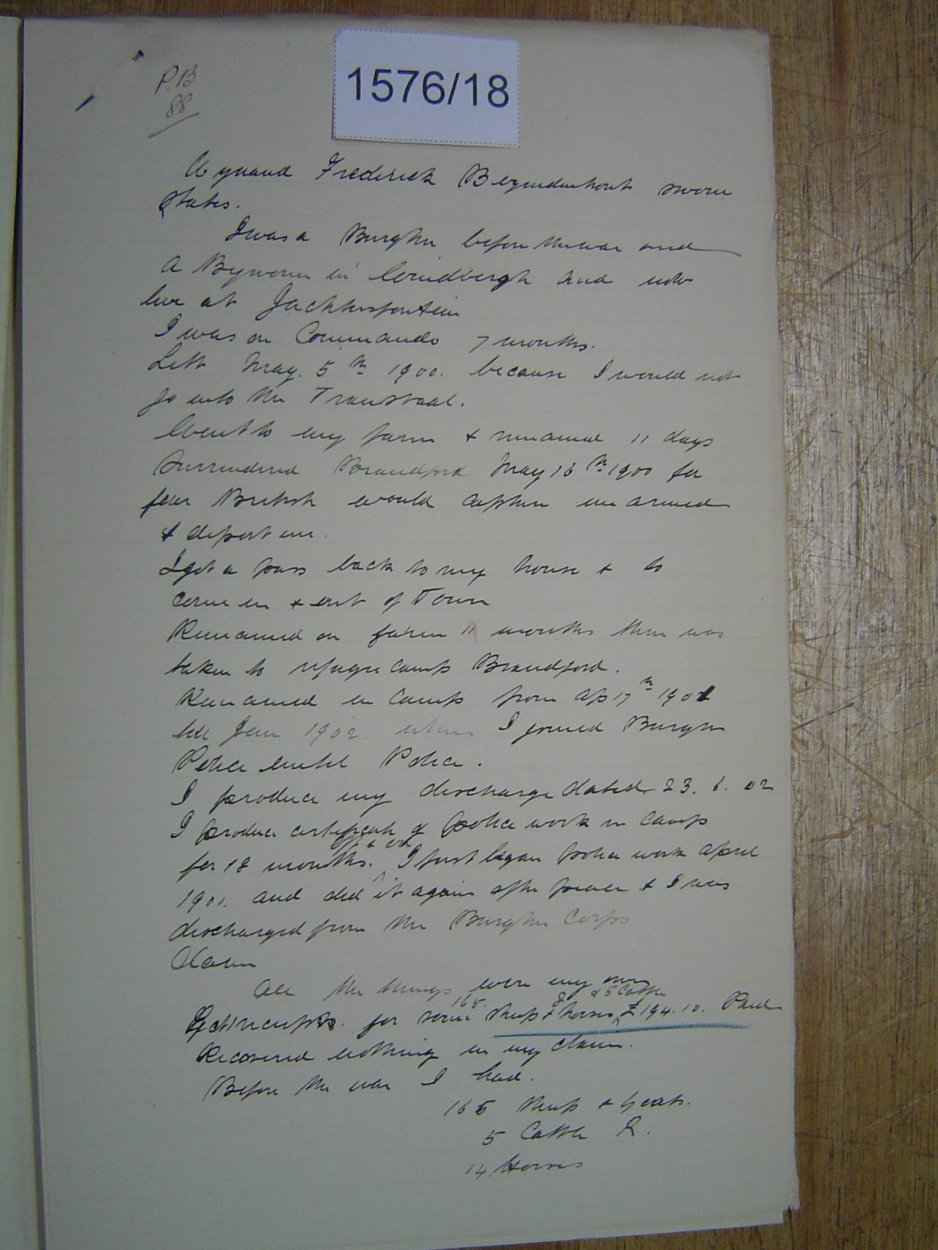 1576/18
P.B
88
Frederick Bezuidenhout sworn
States.
I was a Burgher before the war and
a Bywoner in and now
live at Jackhalsfontein
I was on Commando 7 months.
Left May. 5th 1900. because I would not
go into the Transvaal.
Went to my farm & remained 11 days
Surrendered Brandford May 16th 1900 for
fear British would capture me armed
& deport me.
I got a pass back to my house & to
come in & out of Town
Remained on farm 11 months then was
taken to refugee camp Brandford.
Remained in Camp from Ap 17th 1901
till Jan 1902 when I joined Burgher
Police until Peace.
I produce my discharge dated 23. 6. 02
I produce certificate of police work in camp
for 18 months. off & on I first began police work April
1901. and did it again after peace & I was
discharged from the Burgher Corps
Claim
All the things were my own
Got receipts for some 165 sheep & horses & 5 Cattle £194.10. Paid
Recovered nothing in my claim.
Before the war I had.
165 sheep & goats.
5 Cattle
14 Horses